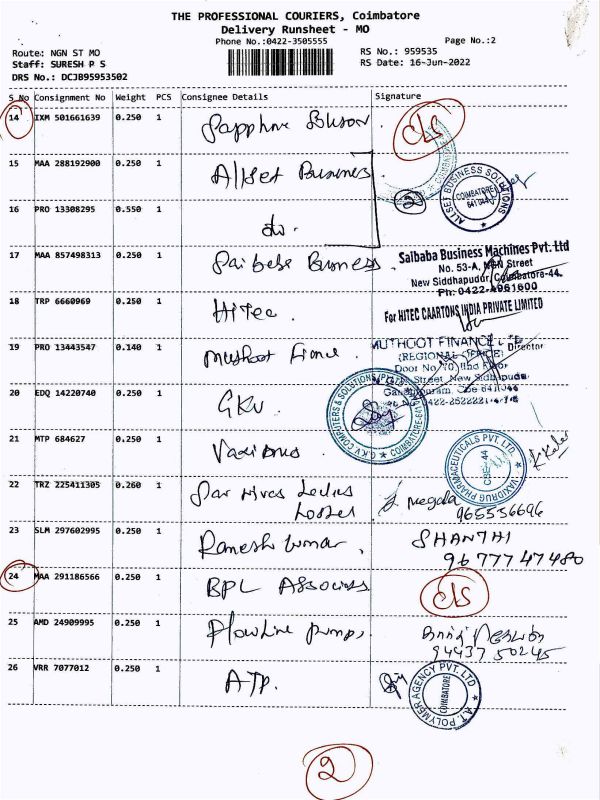 THE PROFESSIONAL COURIERS, Coimbatore
Delivery Runsheet - MO
Phone No.:0422-3505555
Page No.:2
Route: NGN ST MO
RS No.: 959535
Staff: SURESH P S
RS Date: 16-Jun-2022
DRS No.: DCJB95953502
S No Consignment No Weight PCS Consignee Details Signature
14 IXM 501661639 0.250 1 C/S
15 MAA 288192900 0.250 1 Allset Business
2
ALLSET BUSINESS SOLUTIONS
COIMBATORE
16 PRO 13308295 0.550 1 do.
17 MAA 857498313 0.250 1 Business
Saibaba Business Machines Pvt. Ltd
No. 53-A, NGN Street
New Siddhapudur, Coimbatore-44.
Ph: 0422-4961600
18 TRP 6660969 0.250 1 Hitec
For HITEC CAARTONS INDIA PRIVATE LIMITED
Director
19 PRO 13443547 0.140 1 Muthoot
MUTHOOT FINANCE LTD
(REGIONAL OFFICE)
Street, New Sidhapudur
20 EDQ 14220740 0.250 1 GKV
G.K.V COMPUTERS & SOLUTIONS (P) LTD
COIMBATORE-641
21 MTP 684627 0.250 1
VAXIDRUG PHARMACEUTICALS PVT. LTD.
CBE-44
22 TRZ 225411305 0.260 1
Megala
965536696
23 SLM 297602995 0.250 1 Ramesh kumar
SHANTHI
9677747480
24 MAA 291186566 0.250 1 BPL Associates
C/S
25 AMD 24909995 0.250 1 Flowline pumps
94437 50245
26 VRR 7077012 0.250 1 ATP.
A.T. POLYMER AGENCY PVT. LTD
COIMBATORE
2